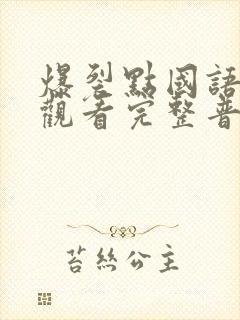 爆裂點國語
觀看完整普
苔絲公主